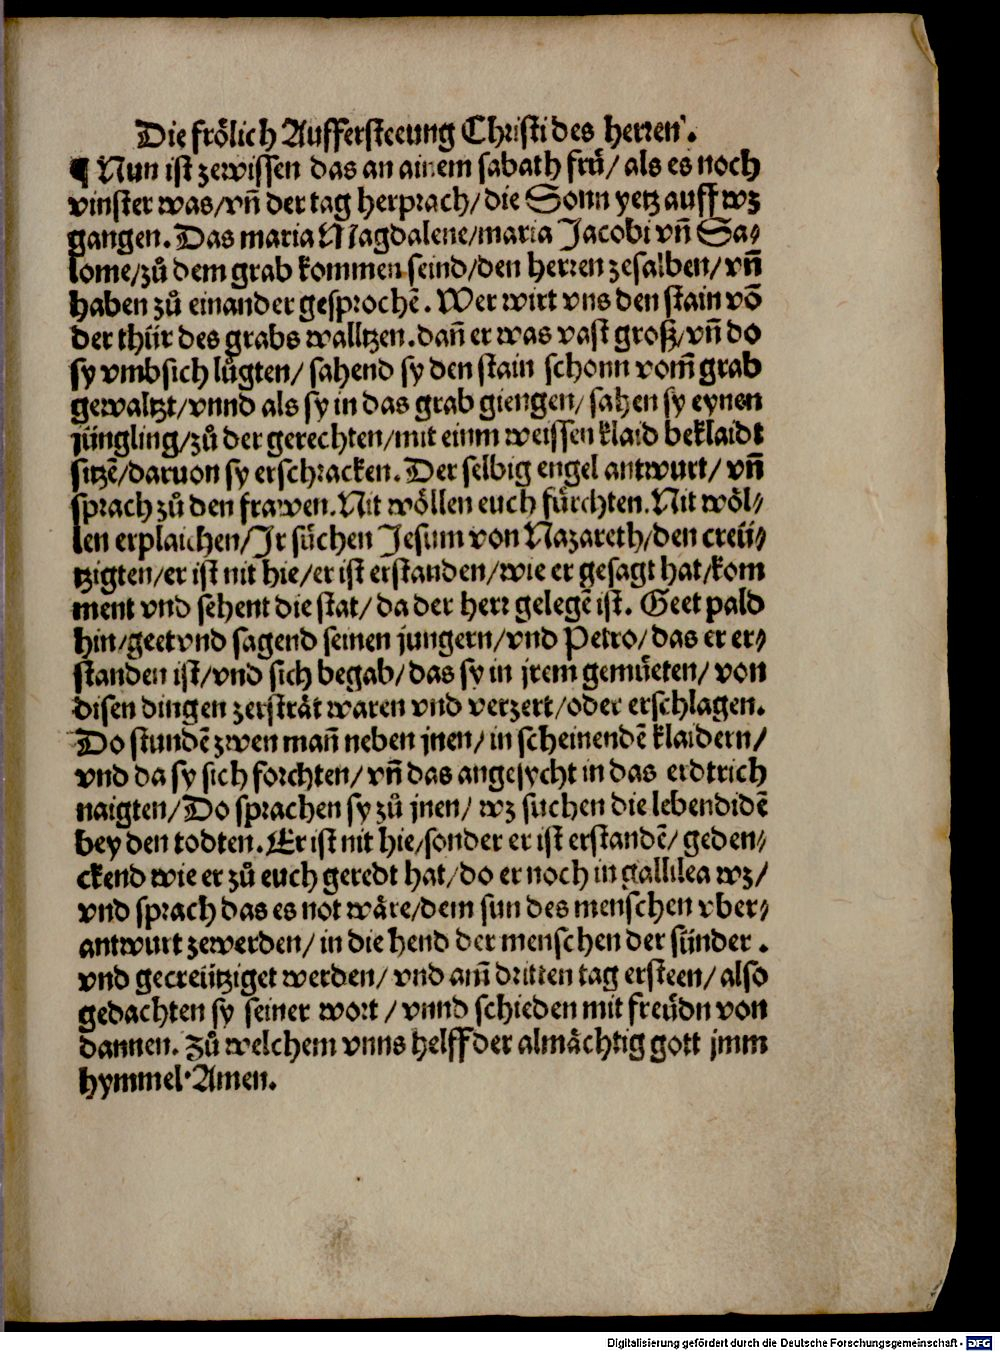 Die frölich Auffersteeung Christi des herren.
¶ Nun ist zewissen das an ainem sabath frü/ als es noch
vinster was/vñ der tag herprach/die Sonn yetz auff wz
gangen. Das maria Magdalene/maria Jacobi vñ Sa⸗
lome/zů dem grab kommen seind/den herren zesalben/ vñ
haben zů einander gesprochē. Wer wirt vns den stain võ
der thür des grabs walltzen. dañ er was vast groß/vñ do
sy vmbsich lůgten/ sahend sy den stain schonn vom̃ grab
gewaltzt/vnnd als sy in das grab giengen/ sahen sy eynen
jüngling/zů der gerechten/mit einm weissen klaid beklaidt
sitzē/daruon sy erschracken. Der selbig engel antwurt/ vñ
sprach zů den frawen. Nit wöllen euch fürchten. Nit wöl⸗
len erplaichen/Jr sůchen Jesum von Nazareth/den creü⸗
tzigten/er ist nit hie/er ist erstanden/wie er gesagt hat/kom
ment vnd sehent die stat/ da der herr gelegē ist. Geet pald
hin/geet vnd sagend seinen jungern/vnd Petro/das er er⸗
standen ist/vnd sich begab/das sy in jrem gemüeten/ von
disen dingen zersträt waren vnd verzert/oder erschlagen.
Do stundē zwen mañ neben jnen/ in scheinendē klaidern/
vnd da sy sich forchten/ vñ das angesycht in das erdtrich
naigten/Do sprachen sy zů jnen/ wz suchen die lebendidē
bey den todten. Er ist nit hie/sonder er ist erstandē/ geden⸗
ckend wie er zů euch geredt hat/do er noch in gallilea wz/
vnd sprach das es not wäre/dem sun des menschen vber⸗
antwurt zewerden/ in die hend der menschen der sünder .
vnd gecreütziget werden/ vnd am̃ dritten tag ersteen/ also
gedachten sy seiner wort / vnnd schieden mit freüdn von
dannen. Zů welchem vnns helff der almächtig gott jmm
hymmel. Amen.
Digitalisierung gefördert durch die Deutsche Forschungsgemeinschaft - DFG